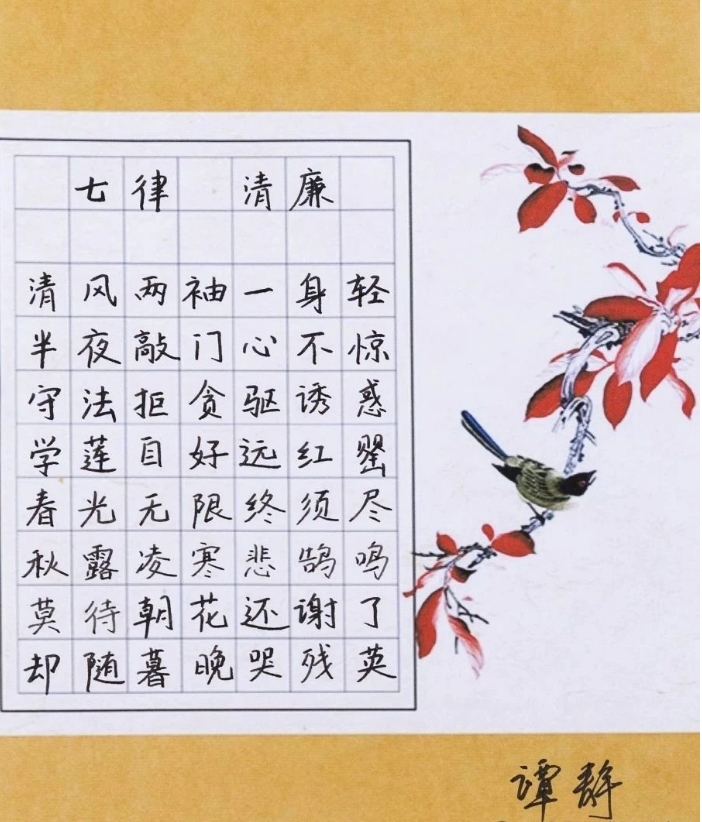 七律 清廉
清风两袖一身轻
半夜敲门心不惊
守法拒贪驱诱惑
学莲自好远红罂
春光无限终须尽
秋露凌寒悲鹄鸣
莫待朝花还谢了
却随暮晚哭残英
谭静